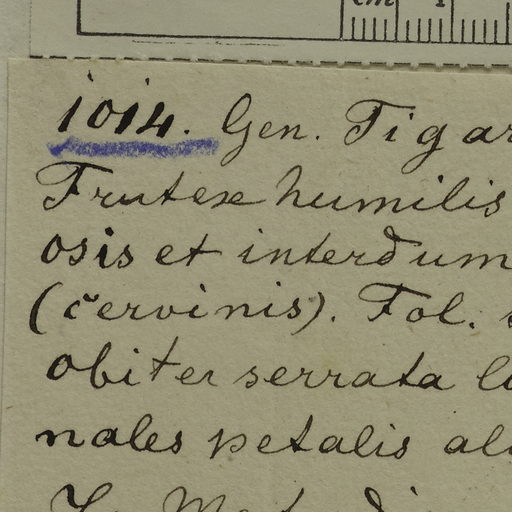 cm 1
1014. Gen. Tigar
Frutex humilis
osis et interdum
(cervinis). Fol.
obiter serrata
nales petalis